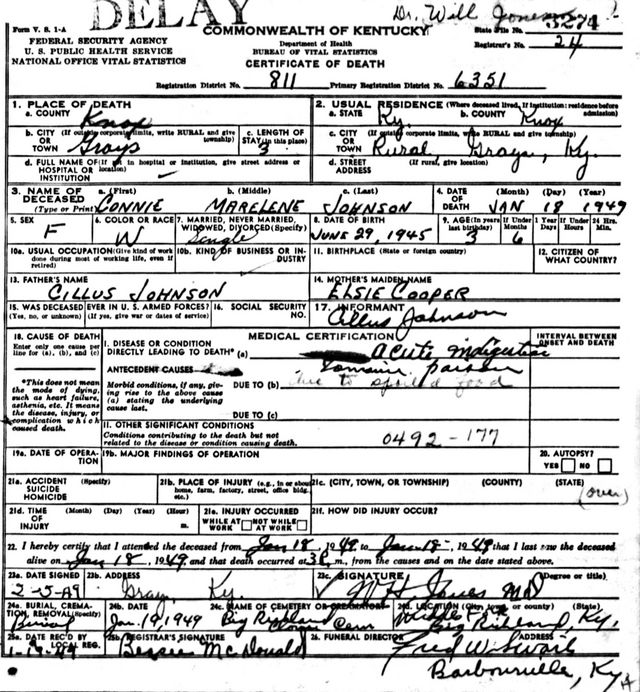 DELAY
Dr. Will Jones
Form V. S. 1-A
COMMONWEALTH OF KENTUCKY
State File No. 3274
FEDERAL SECURITY AGENCY
Department of Health
Registrar's No. 24
U. S. PUBLIC HEALTH SERVICE
BUREAU OF VITAL STATISTICS
NATIONAL OFFICE VITAL STATISTICS
CERTIFICATE OF DEATH
Registration District No. 811 Primary Registration District No. 6351
1. PLACE OF DEATH
a. COUNTY Knox
2. USUAL RESIDENCE (Where deceased lived, If institution: residence before admission)
a. STATE Ky. b. COUNTY Knox
b. CITY (If outside corporate limits, write RURAL and give township) OR TOWN Grays
c. LENGTH OF STAY (in this place)
c. CITY (If outside corporate limits, write RURAL and give township) OR TOWN Rural Grays, Ky.
d. FULL NAME OF (If not in hospital or institution, give street address or location) HOSPITAL OR INSTITUTION
d. STREET ADDRESS (If rural, give location)
3. NAME OF DECEASED (Type or Print)
a. (First) CONNIE b. (Middle) MARELENE c. (Last) JOHNSON
4. DATE OF DEATH (Month) (Day) (Year) JAN 18 1949
5. SEX F
6. COLOR OR RACE W
7. MARRIED, NEVER MARRIED, WIDOWED, DIVORCED (Specify) Single
8. DATE OF BIRTH JUNE 29, 1945
9. AGE (In years last birthday) 3 If Under 1 Year Months 6 Days If Under 24 Hrs. Hours Min.
10a. USUAL OCCUPATION (Give kind of work done during most of working life, even if retired)
10b. KIND OF BUSINESS OR INDUSTRY
11. BIRTHPLACE (State or foreign country)
12. CITIZEN OF WHAT COUNTRY?
13. FATHER'S NAME CILLUS JOHNSON
14. MOTHER'S MAIDEN NAME ELSIE COOPER
15. WAS DECEASED EVER IN U. S. ARMED FORCES? (Yes, no, or unknown) (If yes, give war or dates of service)
16. SOCIAL SECURITY NO.
17. INFORMANT Cillus Johnson
18. CAUSE OF DEATH
Enter only one cause per line for (a), (b), and (c)
MEDICAL CERTIFICATION
INTERVAL BETWEEN ONSET AND DEATH
I. DISEASE OR CONDITION DIRECTLY LEADING TO DEATH* (a) acute indigestion
*This does not mean the mode of dying, such as heart failure, asthenia, etc. It means the disease, injury, or complication which caused death.
ANTECEDENT CAUSES
Morbid conditions, if any, giving rise to the above cause (a) stating the underlying cause last.
DUE TO (b) due to spoiled food
DUE TO (c)
II. OTHER SIGNIFICANT CONDITIONS
Conditions contributing to the death but not related to the disease or condition causing death.
0492-177
19a. DATE OF OPERATION
19b. MAJOR FINDINGS OF OPERATION
20. AUTOPSY? YES NO
21a. ACCIDENT SUICIDE HOMICIDE (Specify)
21b. PLACE OF INJURY (e.g., in or about home, farm, factory, street, office bldg. etc.)
21c. (CITY, TOWN, OR TOWNSHIP) (COUNTY) (STATE)
(over)
21d. TIME OF INJURY (Month) (Day) (Year) (Hour) m.
21e. INJURY OCCURRED WHILE AT WORK NOT WHILE AT WORK
21f. HOW DID INJURY OCCUR?
22. I hereby certify that I attended the deceased from Jan 18, 1949 to Jan 18, 1949 that I last saw the deceased
alive on Jan 18, 1949 and that death occurred at 3 P m., from the causes and on the date stated above.
23a. DATE SIGNED 2-5-49
23b. ADDRESS Grays Ky.
23c. SIGNATURE (Degree or title) W H Jones MD
24a. BURIAL, CREMATION, REMOVAL (Specify) Burial
24b. DATE Jan. 19, 1949
24c. NAME OF CEMETERY OR CREMATORY Big Richland Cem
24d. LOCATION (City, town, or county) (State) Big Richland, Ky.
25a. DATE REC'D BY LOCAL REG.
25b. REGISTRAR'S SIGNATURE Bessie McDonald
26. FUNERAL DIRECTOR ADDRESS
Barbourville, Ky